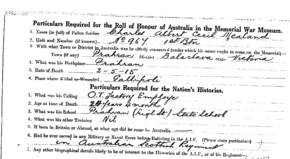 Particulars Required for the Roll of Honour of Australia in the Memorial War Museum.
1. Name (in full) of Fallen Soldier Charles Albert Cecil Mealand
2. Unit and Number (if known) No 967 1st Btn
3. With what Town or District in Australia was he chiefly connected (under which his name ought to come on the Memorial)—
Town Prahran District Balaclava State Victoria
4. What was his Birthplace Prahran
5. Date of Death 2-5-15
6. Place where Killed or Wounded Gallipoli
Particulars Required for the Nation's Histories.
1. What was his Calling Factory Employe
2. Age at time of Death 28 years
3. What was his School Prahran (High St) State School
4. What was his other Training Nil
5. If born in Britain or Abroad, at what age did he come to Australia
6. Had he ever served in any Military or Naval Force before Enlisting in the A.I.F. (Please state particulars)
in Australian Scottish Regiment
7. Any other biographical details likely to be of interest to the Historian of the A.I.F., or of his Regiment